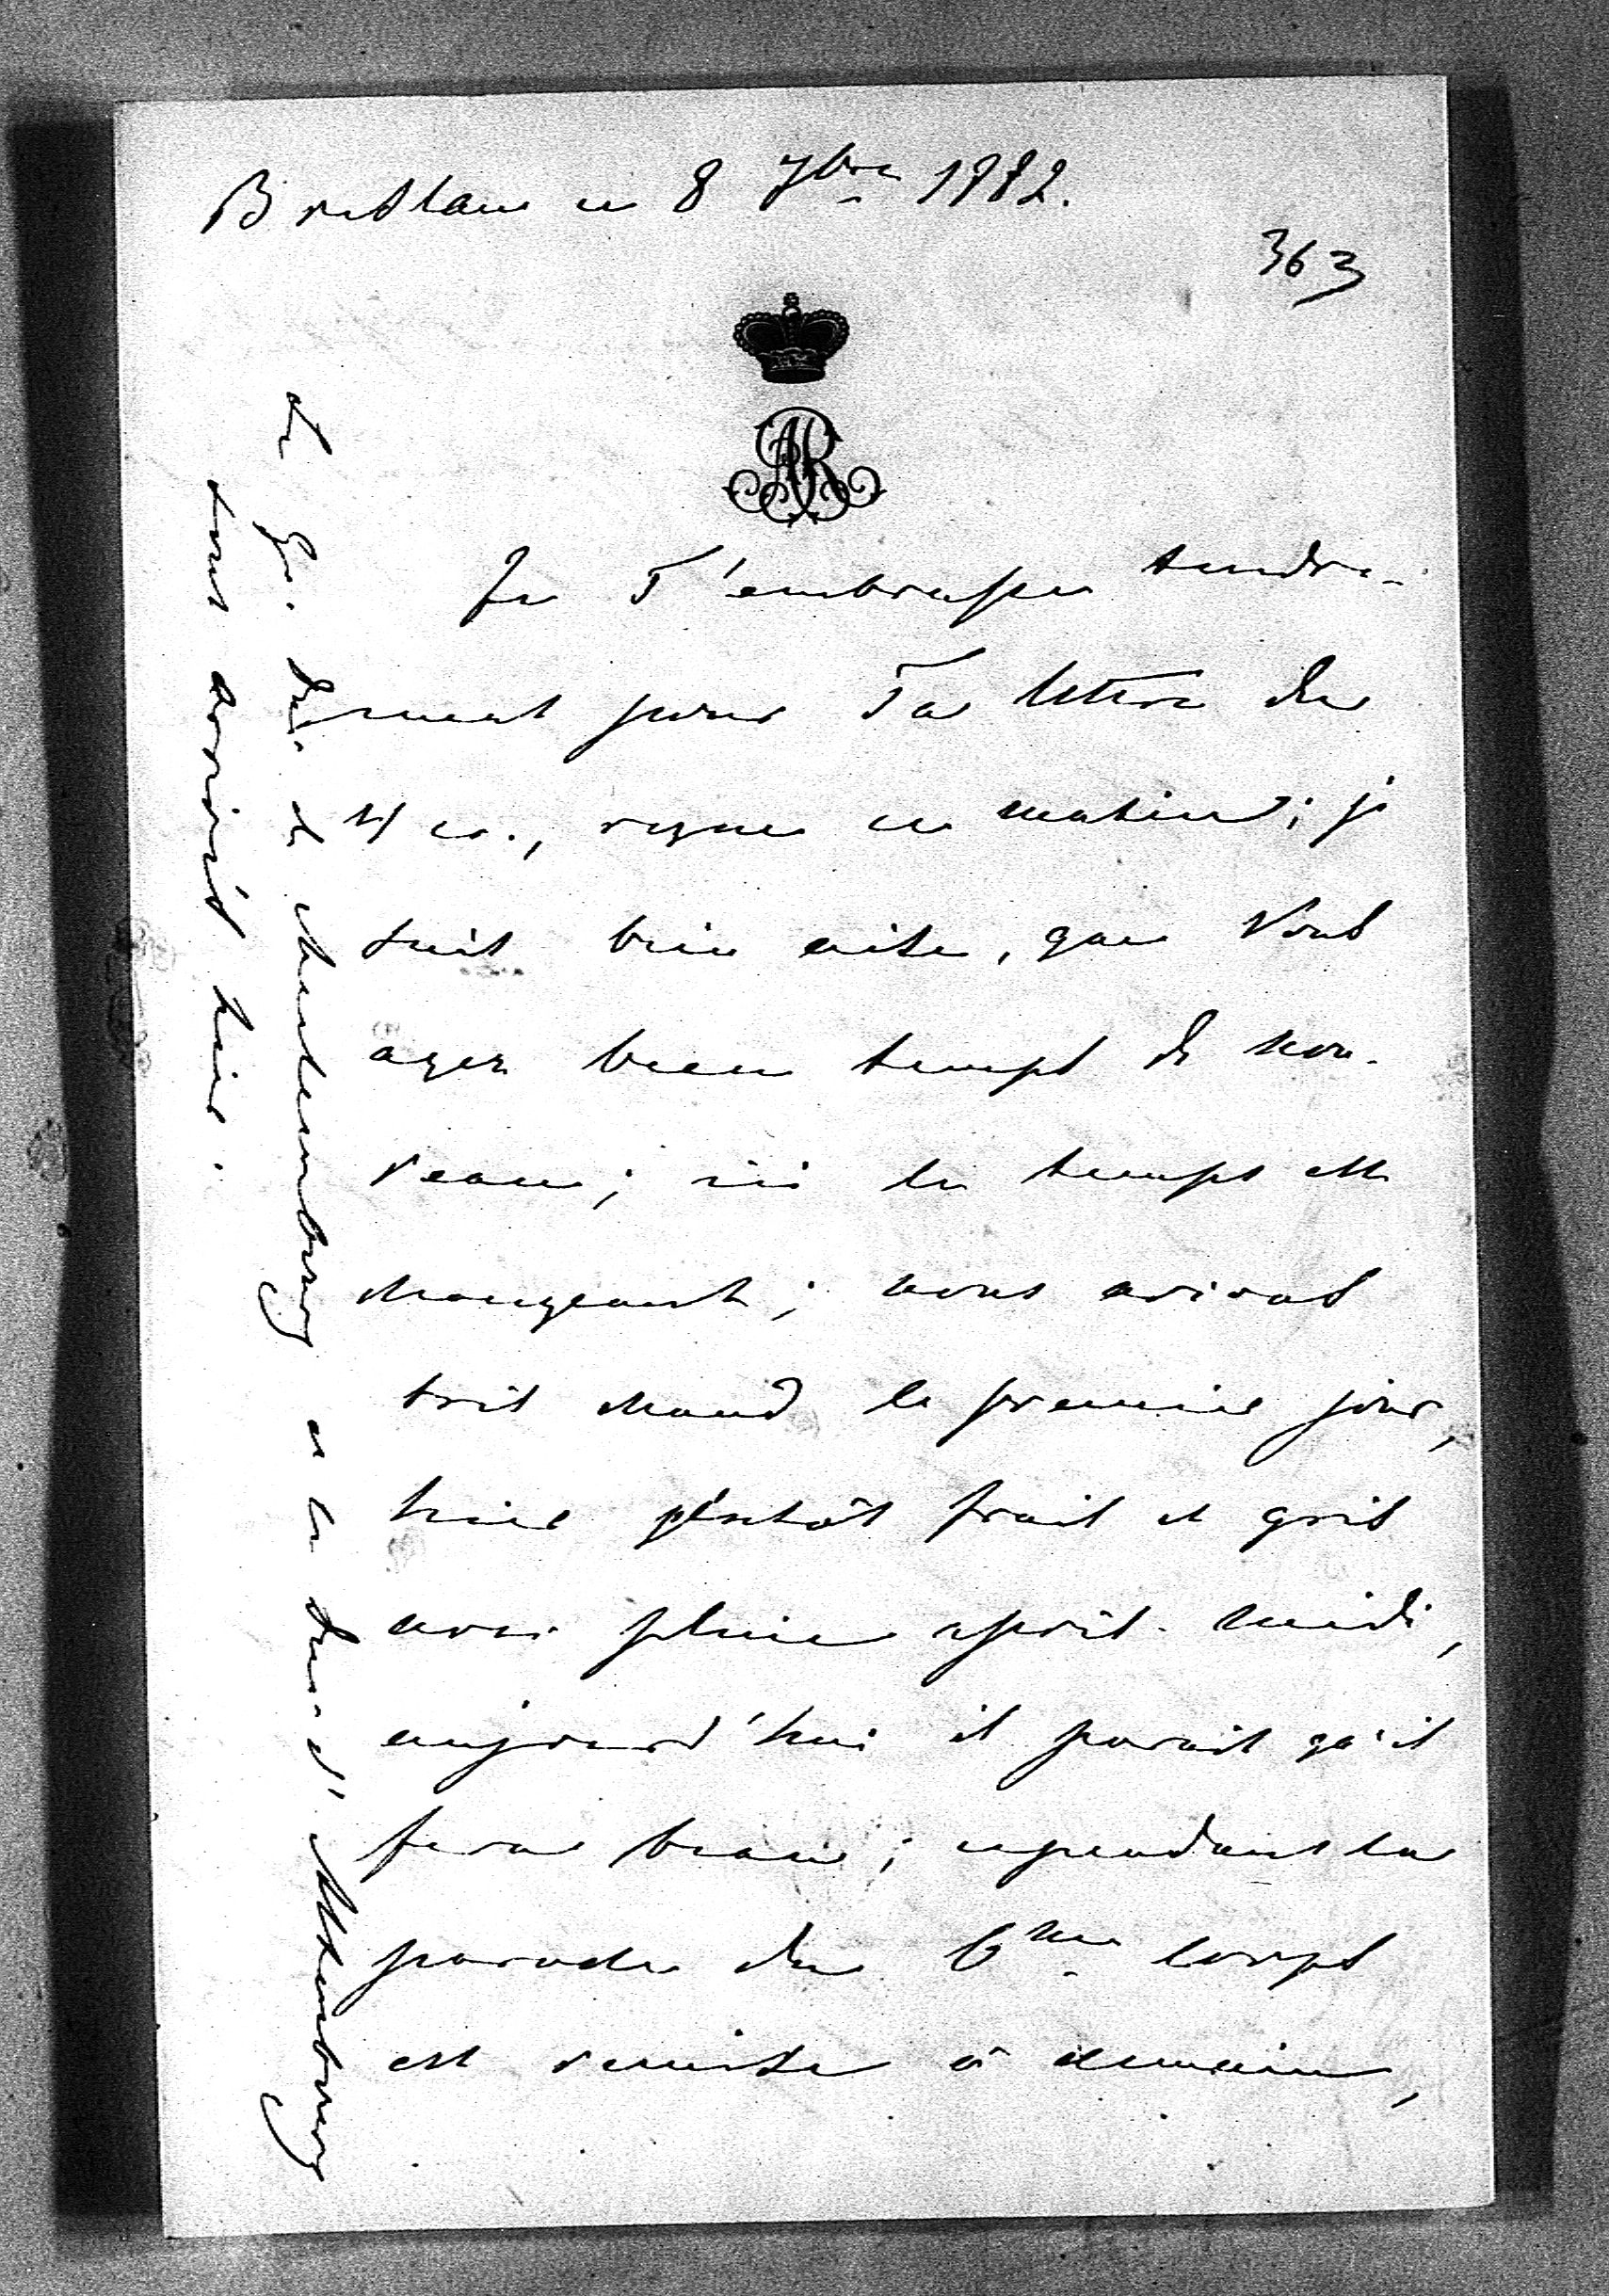 Breslau ce 8 7bre 1882.
363
AR
Je T'embrasse tendre-
ment pour Ta lettre du
reçue ce matin; je
suis bien aise, que Vous
ayez beau temps de nou-
veau; ici le temps est
changeant; nous avions
très chaud le premier jour,
hier plutôt frais et gris
avec pluie après-midi,
aujourd'hui il parait qu'il
fera beau; cependant la
parade du 6me corps
est remise à demain,
Le Gr. Duc de Mecklenbourg et le Duc d'Altenbourg
sont arrivés hier.